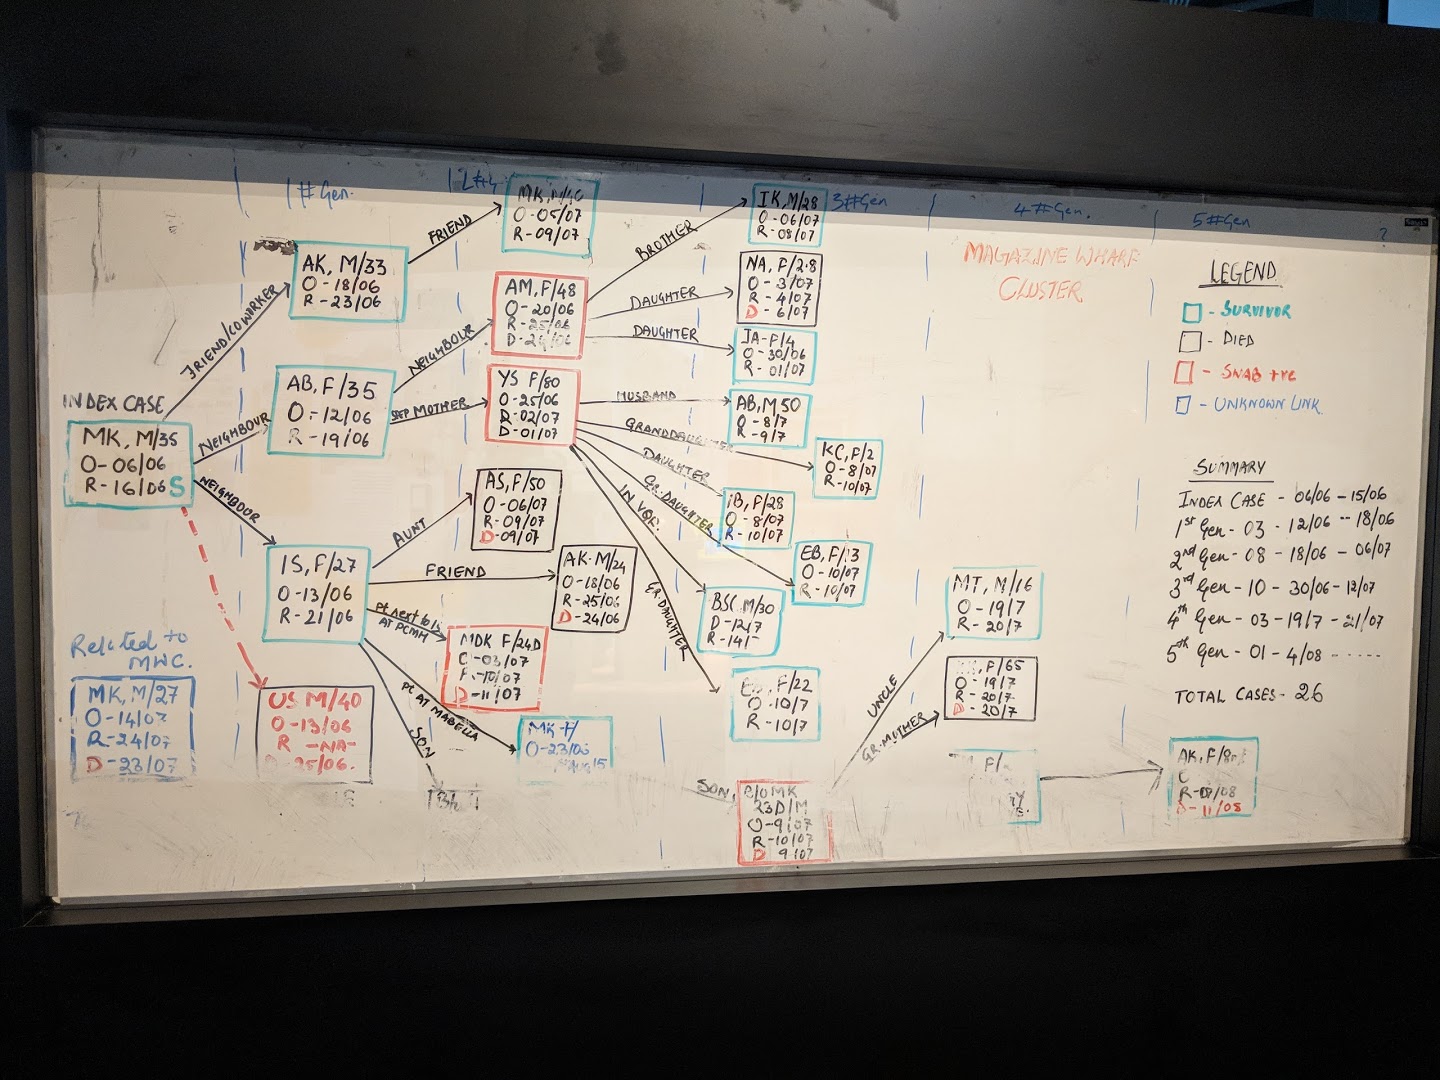 1#Gen.
3#Gen
4#Gen.
5#Gen
?
MAGAZINE WHARF
CLUSTER
INDEX CASE
MK, M/35
O-06/06
R-16/06 S
FRIEND/COWORKER
NEIGHBOUR
NEIGHBOUR
AK, M/33
O-18/06
R-23/06
AB, F/35
O-12/06
R-19/06
IS, F/27
O-13/06
R-21/06
US M/40
O-13/06
R -NA-
D-25/06.
Related to
MWC.
MK, M/27
O-14/07
R-24/07
D-23/07
FRIEND
NEIGHBOUR
STEP MOTHER
AUNT
FRIEND
Pt next to Is
AT PCMH
Pt AT MABELLA
SON
MK, M/40
O-05/07
R-09/07
AM, F/48
O-20/06
R-25/06
D-24/06
YS F/80
O-25/06
R-02/07
D-01/07
AS, F/50
O-06/07
R-09/07
D-09/07
AK-M/24
O-18/06
R-25/06
D-24/06
MDK F/24D
O-03/07
-10/07
D-11/07
MK-F/
O-23/06
BROTHER
DAUGHTER
DAUGHTER
HUSBAND
GRANDDAUGHTER
DAUGHTER
GR.DAUGHTER
GR.DAUGHTER
IK, M/28
O-06/07
R-08/07
NA, F/2.8
O-3/07
R-4/07
D-6/07
JA-F/4
O-30/06
R-01/07
AB, M 50
O-8/7
R-9/7
KC, F/2
O-8/07
R-10/07
IB, F/28
O-8/07
R-10/07
EB, F/13
O-10/07
R-10/07
BSC M/30
O-12/7
R-14/-
F/22
O-10/7
R-10/7
SON,
B/O MK
23D/M
O-9/07
R-10/07
D 9/07
UNCLE
GR.MOTHER
MT, M/16
O-19/7
R-20/7
F/65
O-19/7
R-20/7
D-20/7
F/
AK, F/
R-07/08
D-11/08
LEGEND
- SURVIVOR
- DIED
- SWAB +ve
- UNKNOWN LINK
SUMMARY
INDEX CASE - 06/06 - 15/06
1st Gen - 03 - 12/06 -- 18/06
2nd Gen - 08 - 18/06 - 06/07
3rd Gen - 10 - 30/06 - 12/07
4th Gen - 03 - 19/7 - 21/07
5th Gen - 01 - 4/08 ......
TOTAL CASES - 26